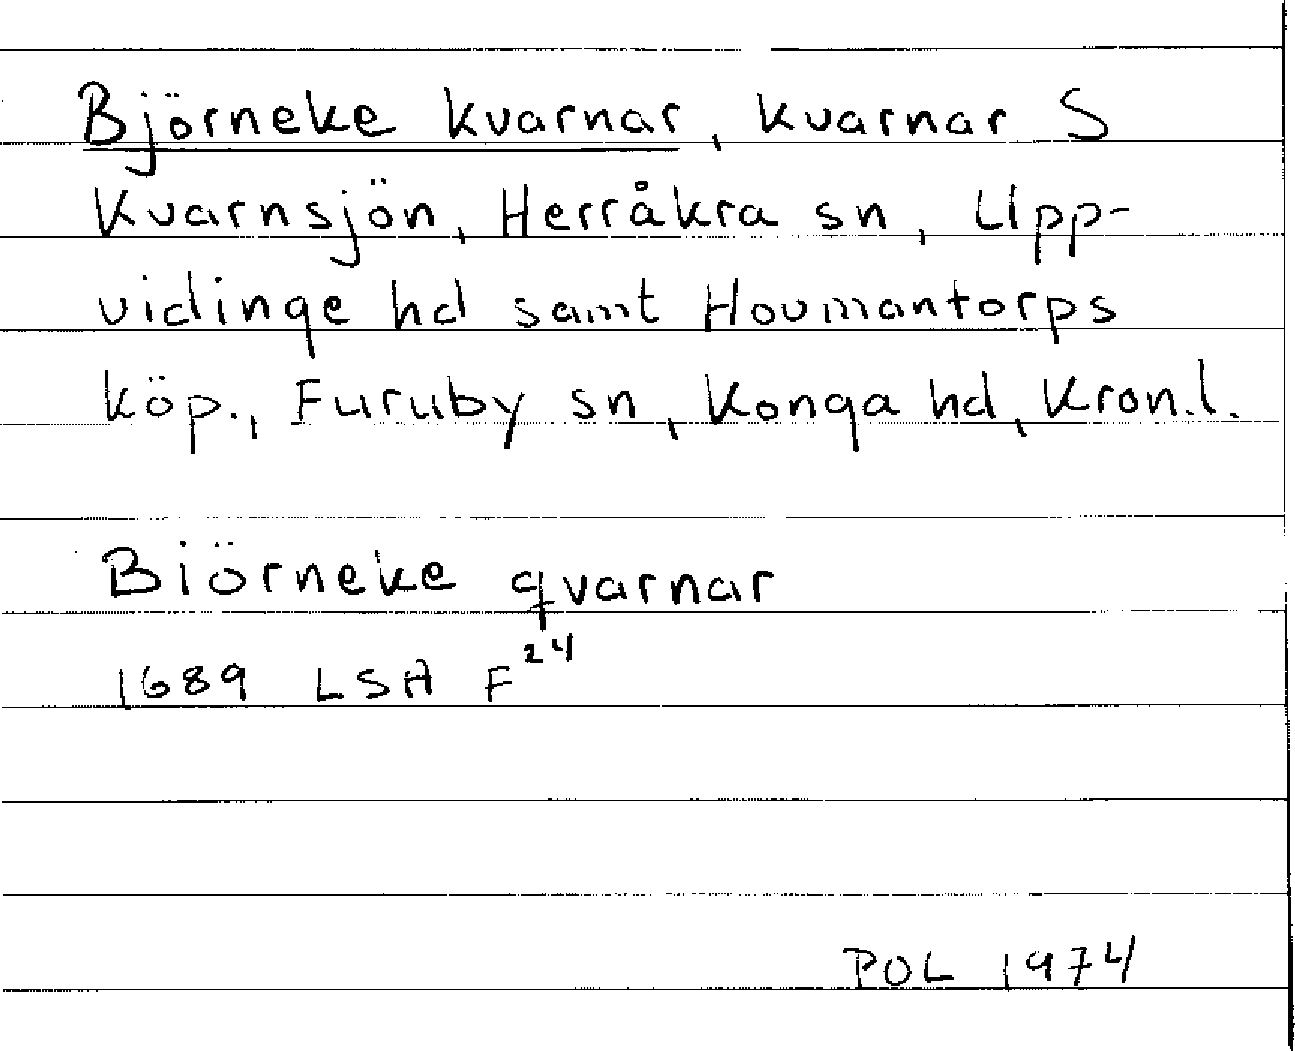 Björneke kvarnar, kvarnar S
Kvarnsjön, Herråkra sn, Upp-
vidinge hd samt Hovmantorps
köp., Furuby sn, Konga hd, Kron.l.
Biörneke qvarnar
1689 LSA F²⁴
POL 1974